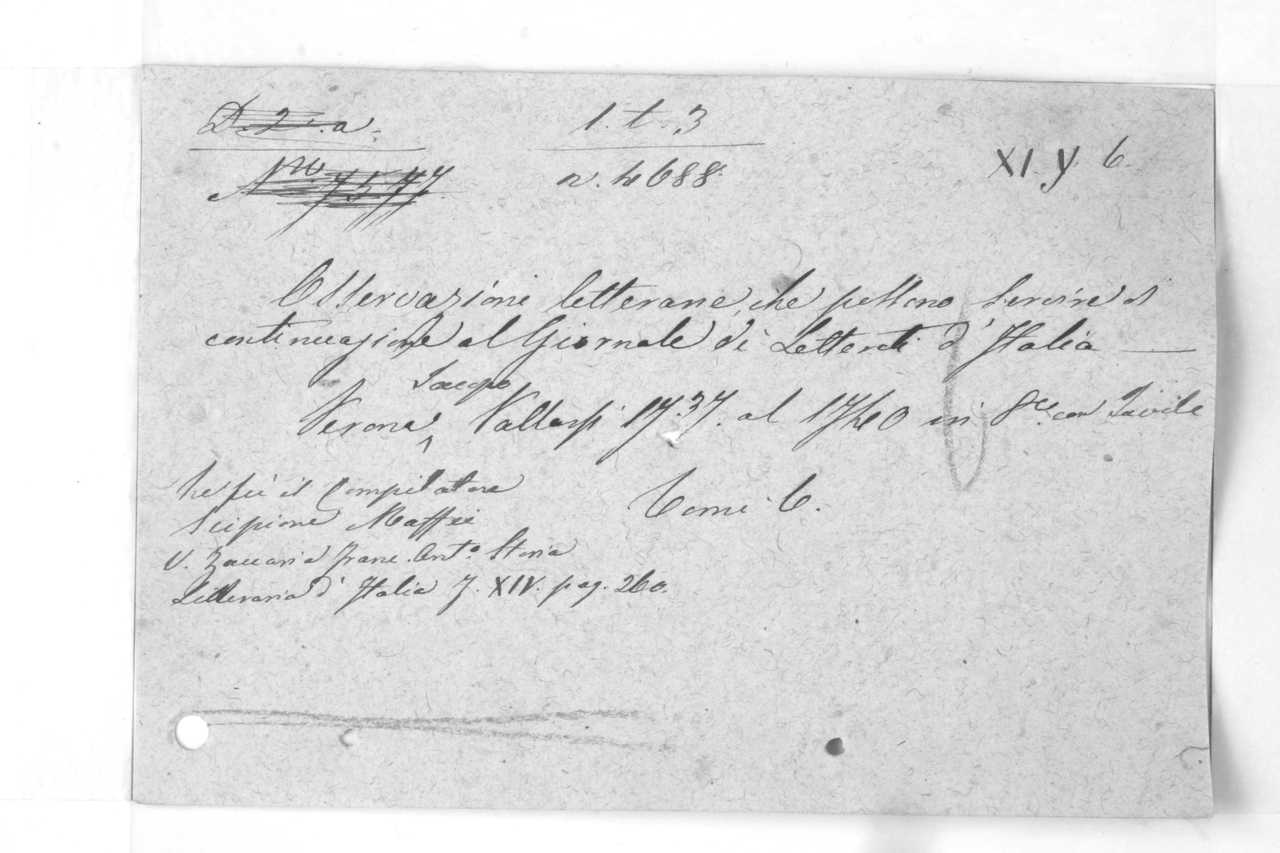 D. 2. a.
1. t. 3
XI. y. 6.
No. 7577.
n. 4688.
Osservazioni letterarie, che possono servire di
continuazione al Giornale dè Letterati d'Italia
Jacopo
Verona, Vallarsi 1737. al 1740 in 8.º con Tavole
Tomi 6.
ne fù il Compilatore
Scipione Maffei
V. Zaccaria Franc. Ant.º Storia
Letteraria d'Italia T. XIV. pag. 260.